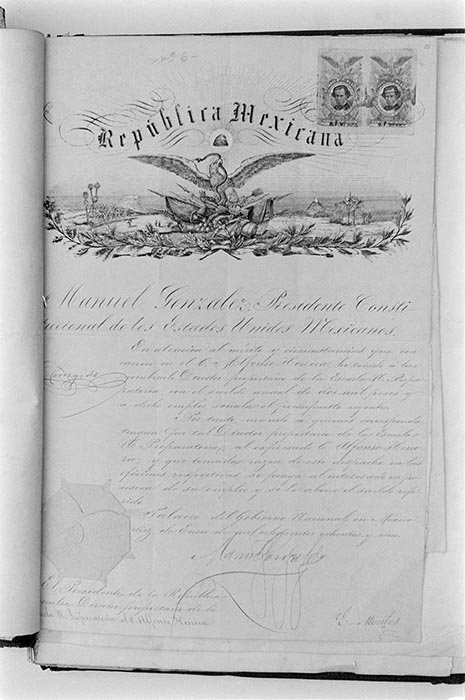 No 6
República Mexicana
Manuel Gonzalez, Presidente Consti
tucional de los Estados Unidos Mexicanos.
En atencion al mérito y circunstancias que con
curren en el C. Alfonso Herrera, ha tenido á bien
nombrarle Director propietario de la Escuela N. Prepa
ratoria con el sueldo anual de dos mil pesos y
á dicho empleo señala el presupuesto vigente.
Por tanto mando á quienes corresponda
tengan por tal Director propietario de la Escuela
N. Preparatoria, al expresado C. Alfonso Herre
ra, y que tomada razon de este despacho en las
oficinas respectivas se ponga al interesado en po
sesion de su empleo y se le abone el sueldo refe
rido.
Palacio del Gobierno Nacional en México
diez de Enero de mil ochocientos ochenta y uno.
Man Gonzalez
E. Montes
El Presidente de la República
nombra Director propietario de la
Escuela N. Preparatoria al C. Alfonso Herrera